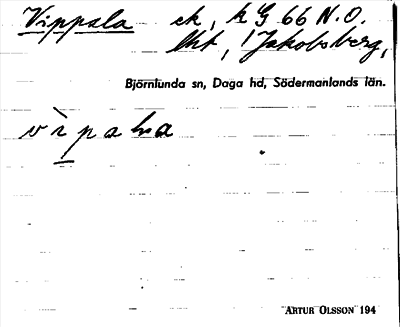 Vippsla ek, k G 66 N.O.
lht, Jakobsberg,
Björnlunda sn, Daga hd, Södermanlands län.
vìpala
ARTUR OLSSON 194